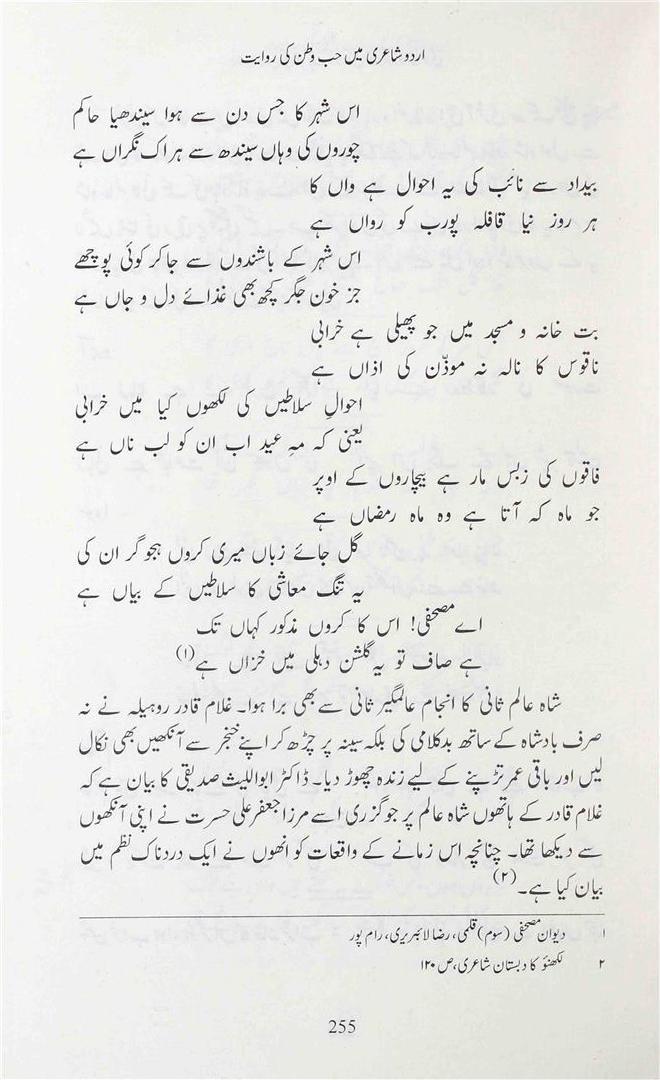 اردو شاعری میں حب وطن کی روایت
اس شہر کا جس دن سے ہوا سیندھیا حاکم
چوروں کی وہاں سیندھ سے ہر اک نگراں ہے
بیداد سے نائب کی یہ احوال ہے واں کا
ہر روز نیا قافلہ پورب کو رواں ہے
اس شہر کے باشندوں سے جا کر کوئی پوچھے
جز خون جگر کچھ بھی غذائے دل و جاں ہے
بت خانہ و مسجد میں جو پھیلی ہے خرابی
ناقوس کا نالہ نہ موذّن کی اذاں ہے
احوالِ سلاطیں کی لکھوں کیا میں خرابی
یعنی کہ مہِ عید اب ان کو لب ناں ہے
فاقوں کی زبس مار ہے بیچاروں کے اوپر
جو ماہ کہ آتا ہے وہ ماہ رمضاں ہے
گل جائے زباں میری کروں ہجو گر ان کی
یہ تنگ معاشی کا سلاطیں کے بیاں ہے
اے مصحفی! اس کا کروں مذکور کہاں تک
ہے صاف تو یہ گلشن دہلی میں خزاں ہے(۱)
شاہ عالم ثانی کا انجام عالمگیر ثانی سے بھی برا ہوا۔ غلام قادر روہیلہ نے نہ
صرف بادشاہ کے ساتھ بدکلامی کی بلکہ سینہ پر چڑھ کر اپنے خنجر سے آنکھیں بھی نکال
لیں اور باقی عمر تڑپنے کے لیے زندہ چھوڑ دیا۔ ڈاکٹر ابواللیث صدیقی کا بیان ہے کہ
غلام قادر کے ہاتھوں شاہ عالم پر جو گزری اسے مرزا جعفر علی حسرت نے اپنی آنکھوں
سے دیکھا تھا۔ چنانچہ اس زمانے کے واقعات کو انھوں نے ایک دردناک نظم میں
بیان کیا ہے۔(۲)
۱ دیوان مصحفی (سوم) قلمی، رضا لائبریری، رام پور
۲ لکھنؤ کا دبستان شاعری، ص ۱۲۰
255